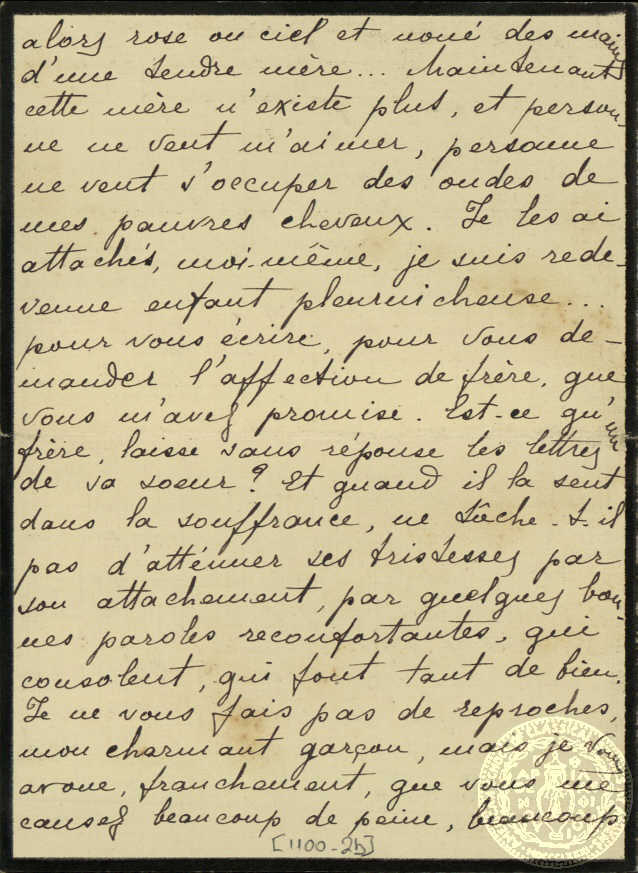 alors rose ou ciel et noué des mains
d'une tendre mère... Maintenant
cette mère n'existe plus, et person-
ne ne veut m'aimer, personne
ne veut s'occuper des ondes de
mes pauvres cheveux. Je les ai
attachés, moi-même, je suis rede-
venue enfant pleurnicheuse...
pour vous écrire, pour vous de-
mander l'affection de frère, que
vous m'avez promise. Est-ce qu'un
frère, laisse sans réponse les lettres
de sa soeur? Et quand il la sent
dans la souffrance, ne tâche-t-il
pas d'atténuer ses tristesses par
son attachement, par quelques bon-
nes paroles reconfortantes, qui
consolent, qui font tant de bien.
Je ne vous fais pas de reproches,
mon charmant garçon, mais je vous
avoue, franchement, que vous me
causez beaucoup de peine, beaucoup
[1100-2b]